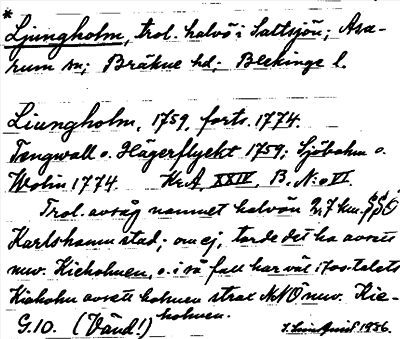 *
Ljungholm, trol. halvö i Saltsjön; Asa-
rum sn; Bräkne hd; Blekinge l.
Liungholm, 1759, forts. 1774.
Tengwall o. Hägerflycht 1759; Sjöbohm o.
Wolin 1774. Kr.A XXIV, B, N:o VI.
Trol. avsåg namnet halvön 2,7 km. SSÖ
Karlshamn stad; om ej, torde det ha avsett
nuv. Kieholmen, o. i så fall har väl 1700-talets
Kieholm avsett holmen strax NNÖ nuv. Kie-
holmen.
G.10. (Vänd!)
1936.